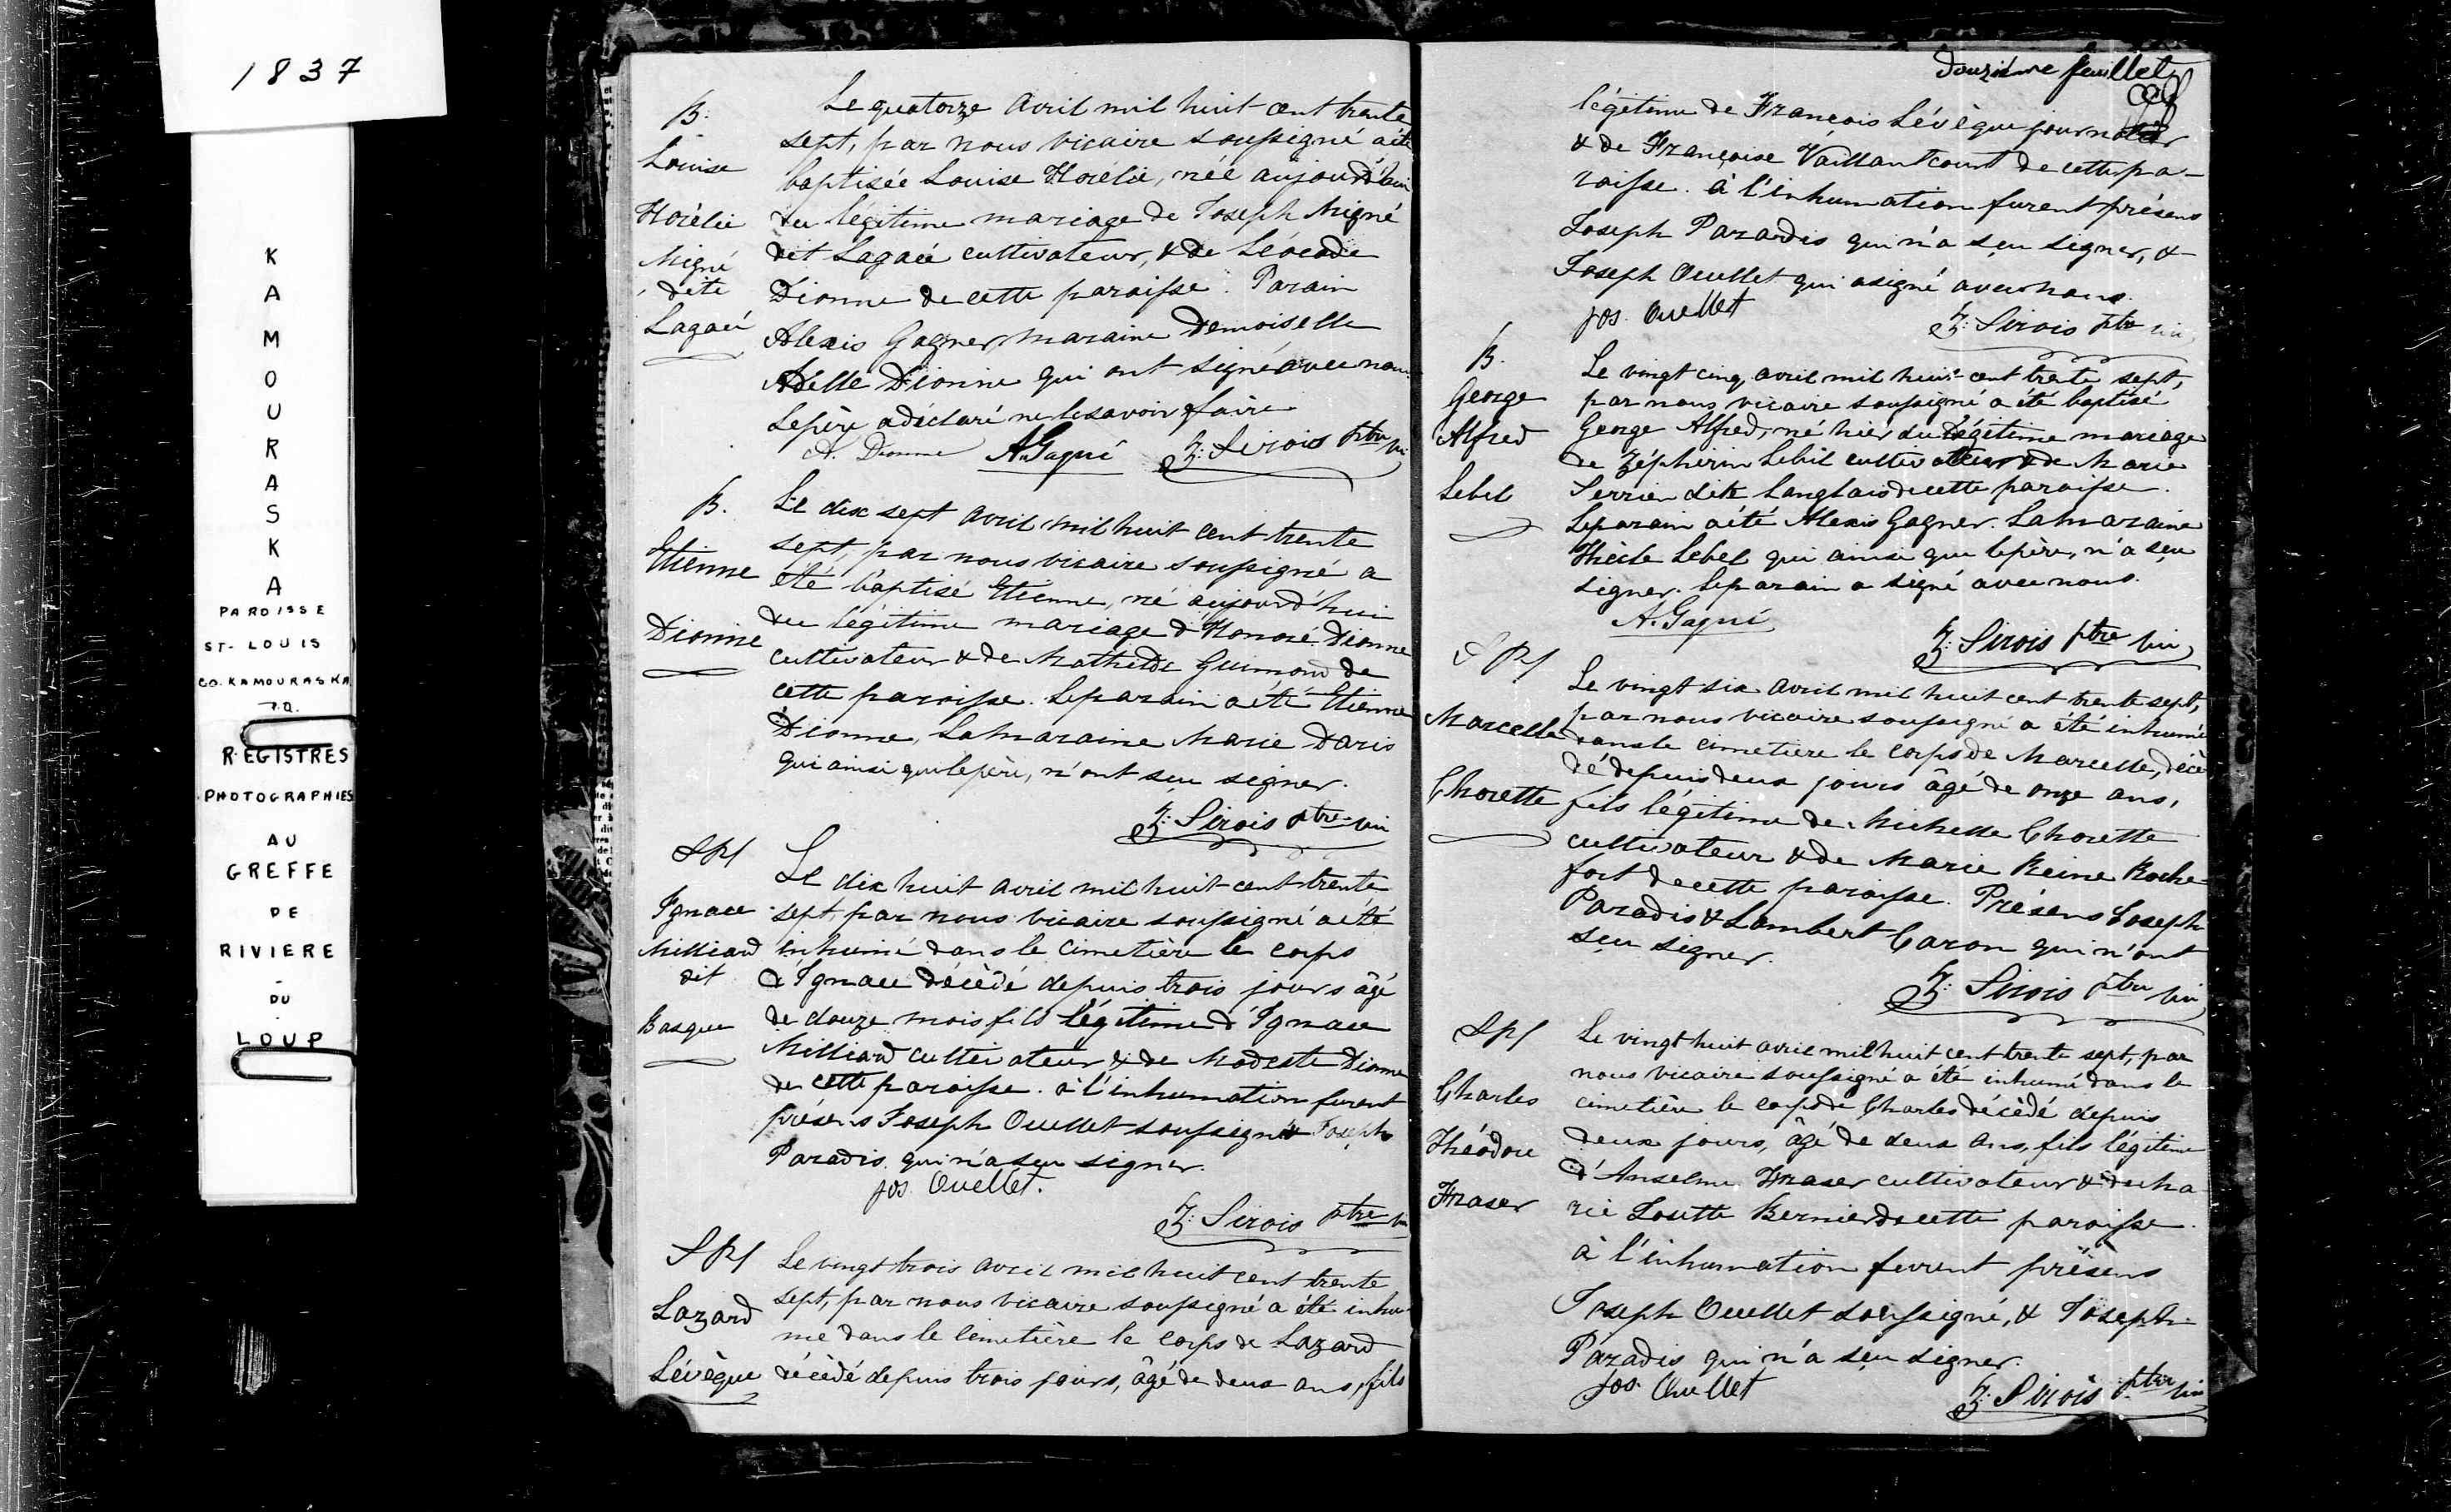 1837
KAMOURASKA
PAROISSE
ST-LOUIS
CO. KAMOURASKA
P.Q.
REGISTRES
PHOTOGRAPHIES
AU
GREFFE
DE
RIVIERE
DU
LOUP
B.
Louise
Horélie
Migné
dite
Lagacé
Le quatorze avril mil huit cent trente
sept, par nous vicaire soussigné a été
baptisée Louise Horélie, née aujourd'hui
du légitime mariage de Joseph Migné
dit Lagacé cultivateur, & de Léocade
Dionne de cette paroisse. Parain
Alexis Gagner, maraine Demoiselle
Adelle Dionne qui ont signé avec nous.
Le père a déclaré ne le savoir faire
A. Dionne A. Gagné Z: Sirois ptre vic
B.
Etienne
Dionne
Le dix sept avril mil huit cent trente
sept, par nous vicaire soussigné a
été baptisé Etienne, né aujourd'hui
du légitime mariage d'Honoré Dionne
cultivateur & de Mathilde Guimond de
cette paroisse. Le parain a été Etienne
Dionne, La Maraine Marie Daris
qui ainsi que le père, n'ont seu signer.
Z: Sirois ptre vic
SP/
Ignace
Milliard
dit
Basque
Le dix huit avril mil huit cent trente
sept, par nous vicaire soussigné a été
inhumé dans le cimetière le corps
d'Ignace décèdé depuis trois jours âgé
de douze mois fils légitime d'Ignace
Milliard cultivateur & de Modeste Dionne
de cette paroisse. à l'inhumation furent
présens Joseph Ouellet soussigné & Joseph
Paradis qui n'a seu signer.
Jos. Ouellet.
Z: Sirois ptre vic
SP/
Lazard
Lévèque
Le vingt trois avril mil huit cent trente
sept, par nous vicaire soussigné a été inhu-
mé dans le cimetière le corps de Lazard
décèdé depuis trois jours, âgé de deux ans, fils
Douzième feuillet
légitime de François Lévèque journalier
& de Françoise Vaillantcourt de cette pa-
roisse. à l'inhumation furent présens
Joseph Paradis qui n'a seu signer, &
Joseph Ouellet qui a signé avec nous.
Jos. Ouellet
Z: Sirois ptre vic
B.
George
Alfred
Lebel
Le vingt cinq avril mil huit cent trente sept,
par nous vicaire soussigné a été baptisé
George Alfred, né hier du légitime mariage
de Zéphirin Lebel cultivateur & de Marie
Serrien dite Langlais de cette paroisse.
Le parain a été Alexis Gagner. La Maraine
Thècle Lebel qui ainsi que le père, n'a seu
signer. Le parain a signé avec nous.
A. Gagné
Z: Sirois ptre vic
SP/
Marcelle
Chorette
Le vingt six avril mil huit cent trente sept,
par nous vicaire soussigné a été inhumé
dans le cimetière le corps de Marcelle, décè
dé depuis deux jours âgé de onze ans,
fils légitime de Michelle Chorette
cultivateur & de Marie Reine Roche-
fort de cette paroisse. Présens Joseph
Paradis & Lambert Caron qui n'ont
seu signer.
Z: Sirois ptre vic
SP/
Charles
Théodore
Fraser
Le vingt huit avril mil huit cent trente sept, par
nous vicaire soussigné a été inhumé dans le
cimetière le corps de Charles décèdé depuis
deux jours, âgé de deux ans, fils légitime
d'Anselme Fraser cultivateur & de Ma-
rie Josette Bernier de cette paroisse.
à l'inhumation furent présens
Joseph Ouellet soussigné, & Joseph
Paradis qui n'a seu signer.
Jos. Ouellet
Z: Sirois ptre vic